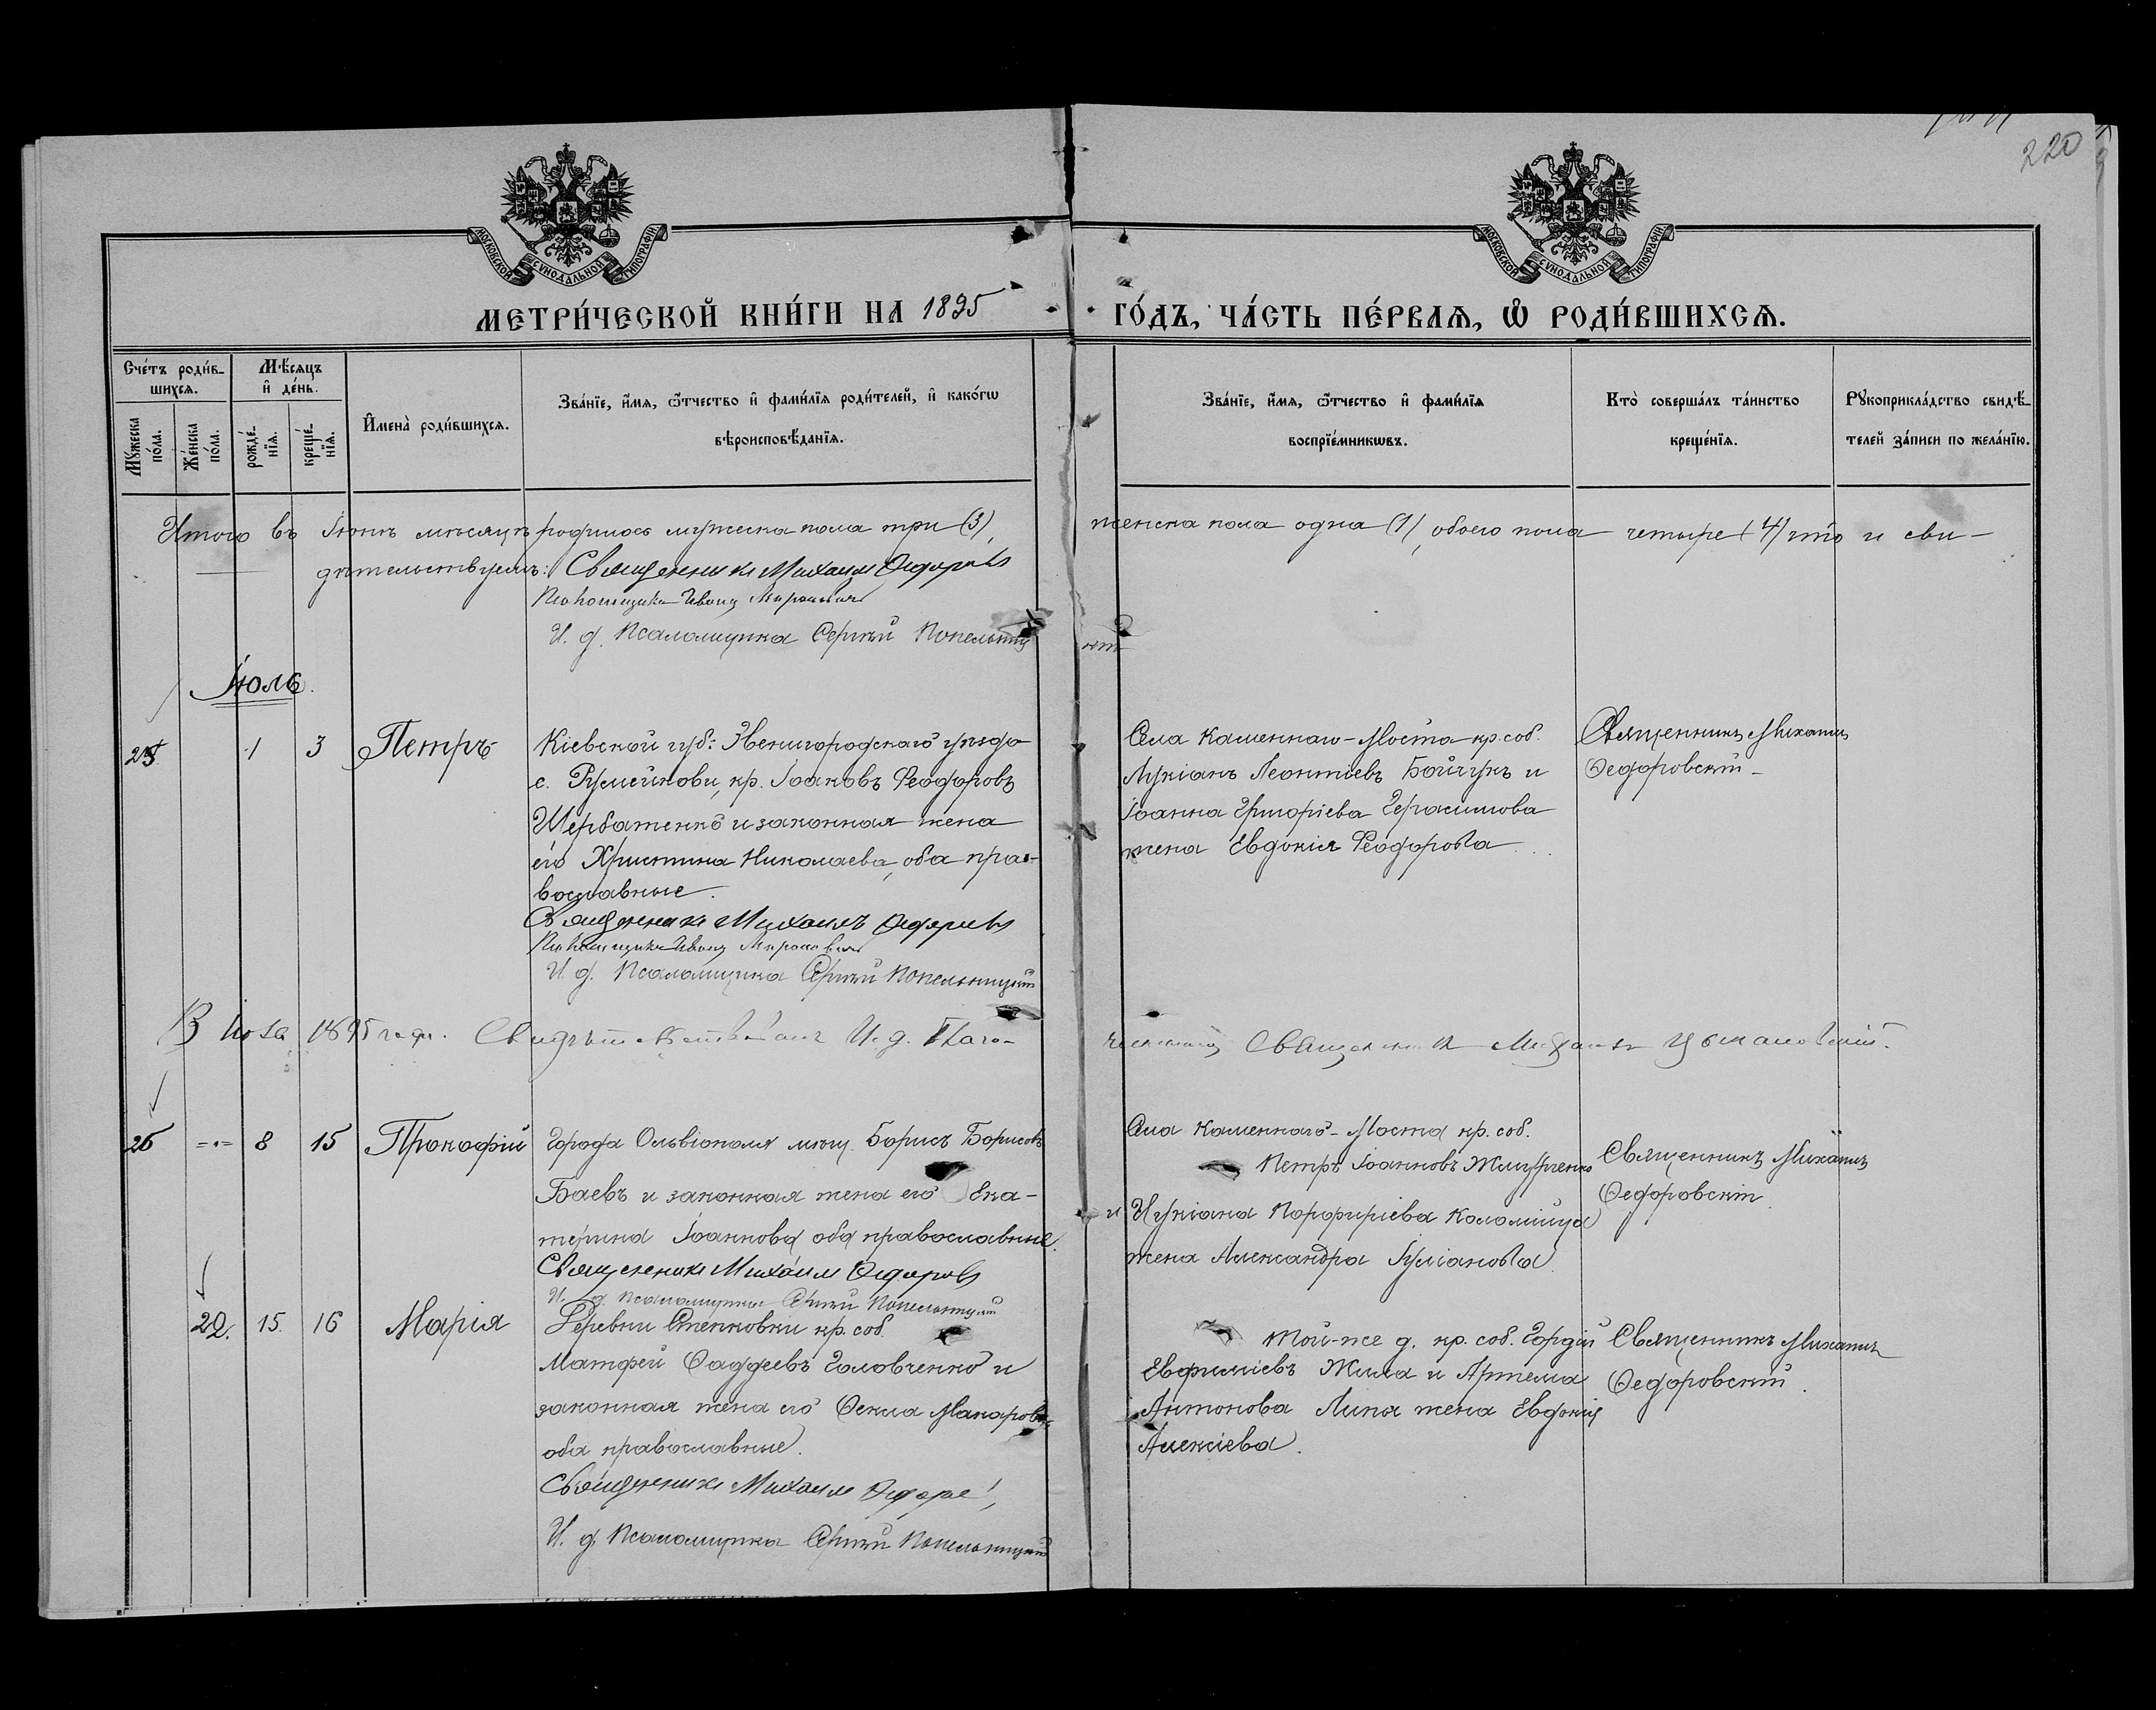 220
МОСКОВСКОЙ СѴНОДАЛЬНОЙ ТИПОГРАФІИ
МОСКОВСКОЙ СѴНОДАЛЬНОЙ ТИПОГРАФІИ
МЕТРИ́ЧЕСКОЙ КНИ́ГИ НА 1895 ГО́ДЪ, ЧА́СТЬ ПЕ́РВАѦ, Ѽ РОДИ́ВШИХСѦ.
Сче́тъ роди́в-
шихсѧ.
Мѣ́сѧцъ
и҆ де́нь.
Мꙋ́жеска
по́ла.
Же́нска
по́ла.
рожде́-
нїѧ.
креще́-
нїѧ.
И҆мена̀ роди́вшихсѧ.
Зва́нїе, и҆́мѧ, ѻ҆́тчество и҆ фами́лїѧ роди́телей, и҆ како́гѡ
вѣроисповѣ́данїѧ.
Зва́нїе, и҆́мѧ, ѻ҆́тчество и҆ фами́лїѧ
воспрїе́мникѡвъ.
Кто̀ соверша́лъ та́инство
креще́нїѧ.
Рꙋкоприкла́дство свидѣ́-
телей за́писи по жела́нїю.
Итого въ Іюнѣ мѣсяцѣ родилось мужеска пола три (3), женска пола одна (1), обоего пола четыре (4) что и сви-
дѣтельствуемъ: Священникъ Михаилъ
Иванъ
И. д. Псаломщика Сергѣй Попельницкій
Іюль.
25 1 3 Петръ
Кіевской губ: Звенигородскаго уѣзда
с. Румейкови, кр. Іоаковъ Ѳеодоровъ
Щербатенко и законная жена
его Христина Николаева, оба пра-
вославные.
Священникъ Михаилъ
Иванъ
И. д. Псаломщика Сергѣй Попельницкій
Села Каменнаго-Моста кр. соб.
Лукіанъ Леонтіевъ Бойчукъ и
Іоанна Григоріева Герасимова
жена Евдокія Ѳеодорова
Священникъ Михаилъ
Ѳедоровскій
13 Іюля 1895 года. И. д. Благо-
чиннаго Священникъ Михаилъ
26 8 15 Прокофій
Города Ольвіополя мѣщ. Борисъ Борисовъ
Баевъ и законная жена его Ека-
терина Іоаннова оба православные.
Священникъ Михаилъ
И. д. Псаломщика Сергѣй Попельницкій
Села Каменнаго-Моста кр. соб.
Петръ Іоанновъ
и Лукіана Порфиріева Коломійца
жена Александра Іуліанова
Священникъ Михаилъ
Ѳедоровскій
22. 15. 16 Марія
Деревни Степковки кр. соб.
Матфей Ѳаддеевъ Головченко и
законная жена его Ѳекла Макарова
оба православные.
Священникъ Михаилъ
И. д. Псаломщика Сергѣй Попельницкій
Той-же д. кр. соб. Гордій
Евфиміевъ Жила и Артема
Антонова Липа жена Евдокія
Алексіева.
Священникъ Михаилъ
Ѳедоровскій